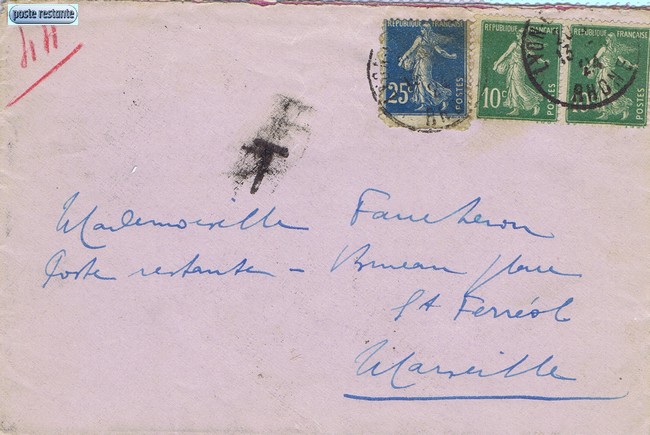 poste restante
44
REPUBLIQUE FRANÇAISE
25c
POSTES
REPUBLIQUE FRANÇAISE
10c
POSTES
REPUBLIQUE FRANÇAISE
POSTES
LYON
RHONE
T
Mademoiselle Faucheron
Poste restante - Bureau place
St Ferréol
Marseille